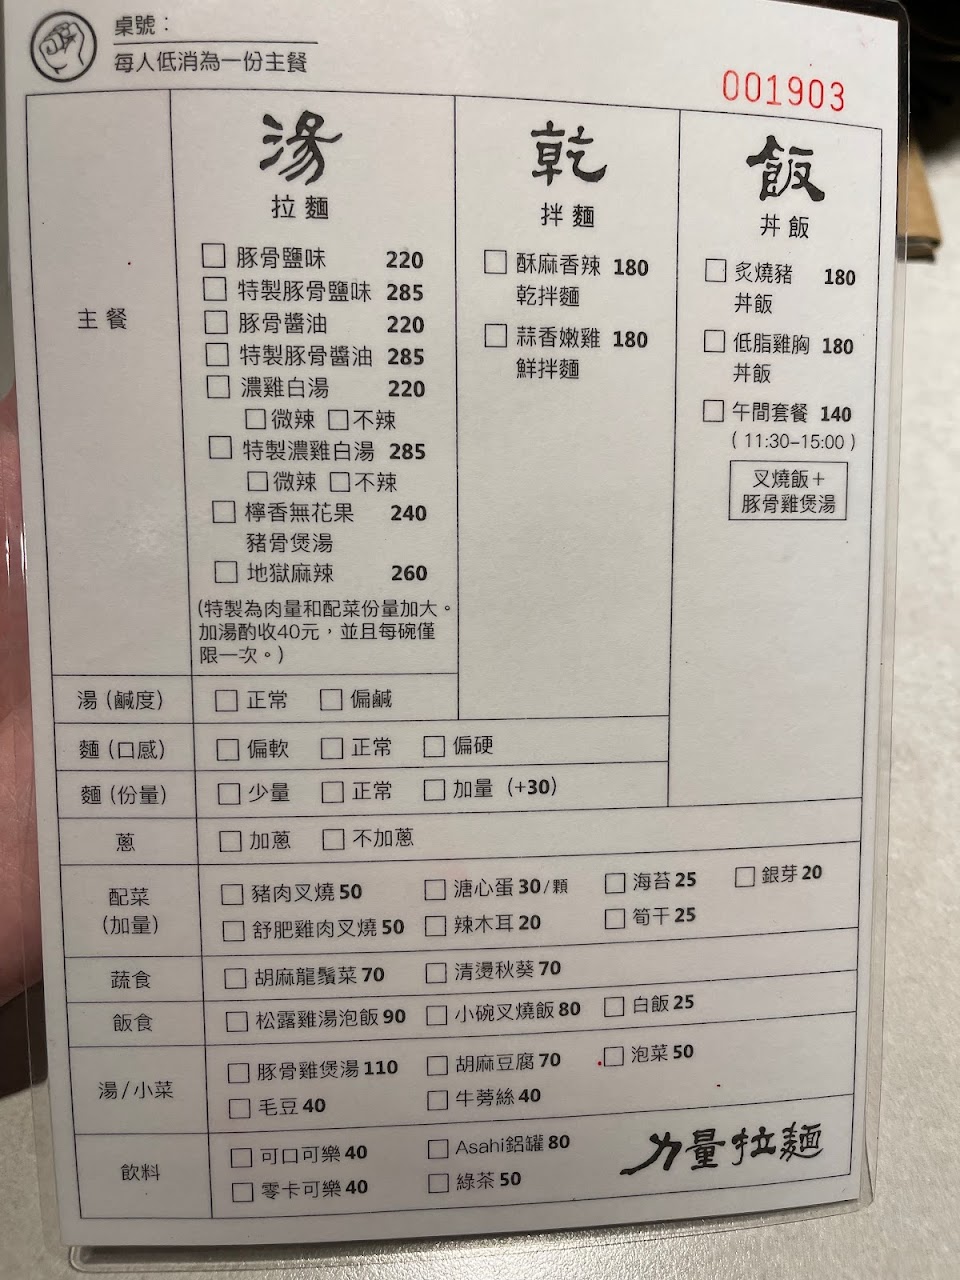 桌號：
每人低消為一份主餐
001903
主餐
湯
拉麵
豚骨鹽味 220
特製豚骨鹽味 285
豚骨醬油 220
特製豚骨醬油 285
濃雞白湯 220
微辣 不辣
特製濃雞白湯 285
微辣 不辣
檸香無花果 240
豬骨煲湯
地獄麻辣 260
(特製為肉量和配菜份量加大。
加湯酌收40元，並且每碗僅
限一次。)
乾
拌麵
酥麻香辣 180
乾拌麵
蒜香嫩雞 180
鮮拌麵
飯
丼飯
炙燒豬 180
丼飯
低脂雞胸 180
丼飯
午間套餐 140
(11:30-15:00)
叉燒飯＋
豚骨雞煲湯
湯(鹹度) 正常 偏鹹
麵(口感) 偏軟 正常 偏硬
麵(份量) 少量 正常 加量 (+30)
蔥 加蔥 不加蔥
配菜
(加量)
豬肉叉燒 50 溏心蛋 30/顆 海苔 25 銀芽 20
舒肥雞肉叉燒 50 辣木耳 20 筍干 25
蔬食 胡麻龍鬚菜 70 清燙秋葵 70
飯食 松露雞湯泡飯 90 小碗叉燒飯 80 白飯 25
湯/小菜
豚骨雞煲湯 110 胡麻豆腐 70 泡菜 50
毛豆 40 牛蒡絲 40
飲料
可口可樂 40 Asahi鋁罐 80
零卡可樂 40 綠茶 50
力量拉麵